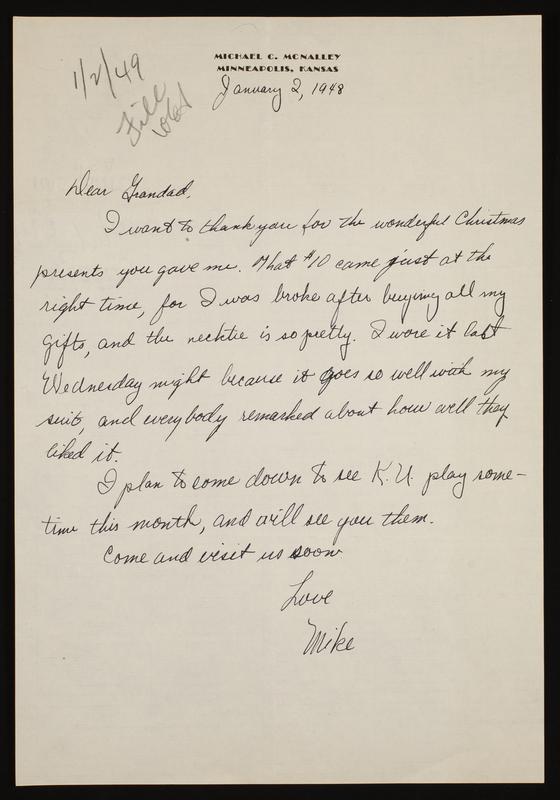 MICHAEL C. MCNALLEY
MINNEAPOLIS, KANSAS
January 2, 1948
1/2/49
File
Dear Grandad,
I want to thank you for the wonderful Christmas
presents you gave me. That $10 came just at the
right time, for I was broke after buying all my
gifts, and the necktie is so pretty. I wore it last
Wednesday night because it goes so well with my
suit, and everybody remarked about how well they
liked it.
I plan to come down to see K.U. play some-
time this month, and will see you then.
Come and visit us soon
Love
Mike